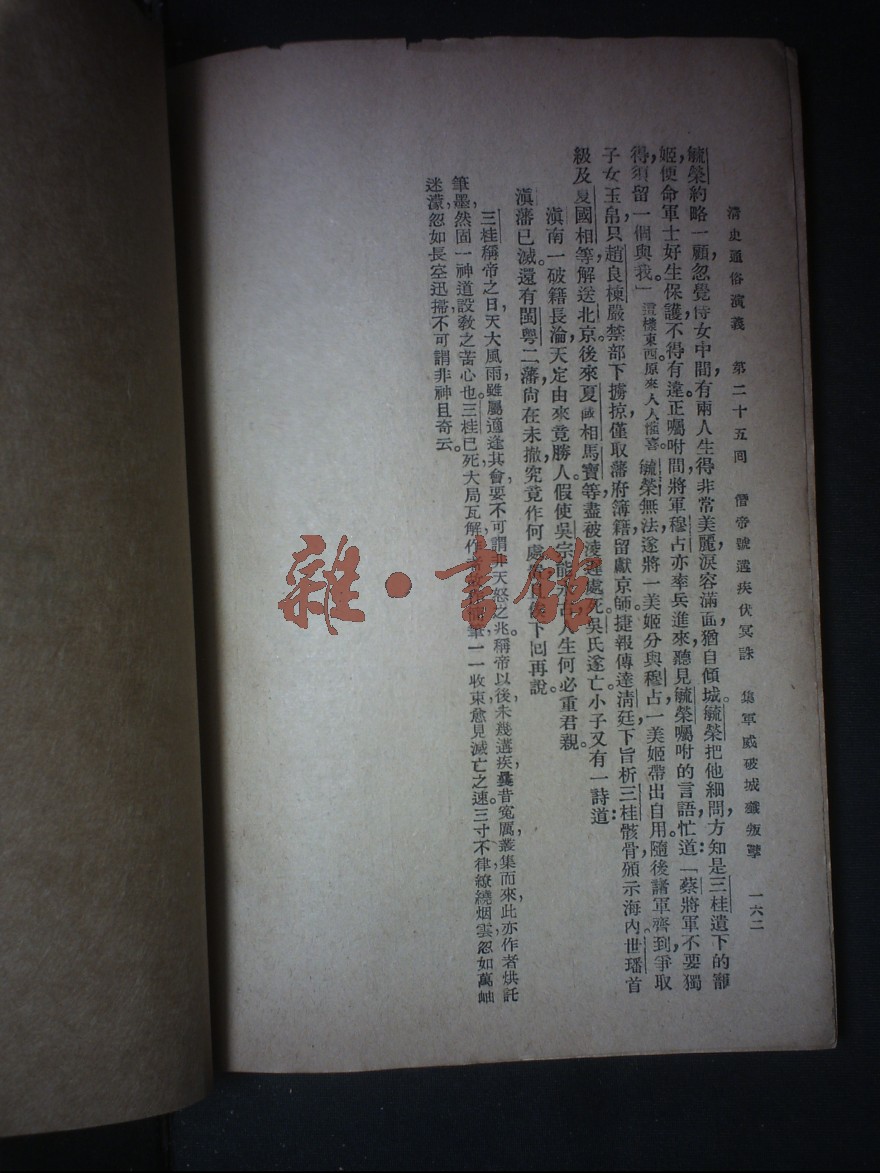 清史通俗演義　第二十五回　僭帝號遘疾伏冥誅　集軍威破城殲叛孽　一六二
毓榮約略一顧，忽覺侍女中間，有兩人生得非常美麗，淚容滿面，猶自傾城。毓榮把他細問，方知是三桂遺下的寵
姬，便命軍士好生保護，不得有違。正囑咐間，將軍穆占亦率兵進來，聽見毓榮囑咐的言語，忙道：「蔡將軍不要獨
得，須留一個與我。」這樣東西原來人人喜。毓榮無法，遂將一美姬分與穆占，一美姬帶出自用。隨後諸軍齊到，爭取
子女玉帛，只趙良棟嚴禁部下擄掠，僅取藩府簿籍，留獻京師。捷報傳達清廷，下旨析三桂骸骨，頒示海內，世璠首
級及夏國相等解送北京，後來夏國相馬寶等，盡被凌遲處死，吳氏遂亡。小子又有一詩道：
滇南一破籍長淪，天定由來竟勝人。假使吳宗能永占，人生何必重君親。
滇藩已滅，還有閩粵二藩，尚在未撤，究竟作何處下回再說。
三桂稱帝之日，天大風雨，雖屬適逢其會，要不可謂非天怒之兆。稱帝以後，未幾遘疾，曩昔冤厲，叢集而來，此亦作者烘託
筆墨，然固一神道設教之苦心也。三桂已死，大局瓦解，作者筆一一收束，愈見滅亡之速。三寸不律，繚繞烟雲，忽如萬岫
迷濛，忽如長空迅掃，不可謂非神且奇云。
雜·書館